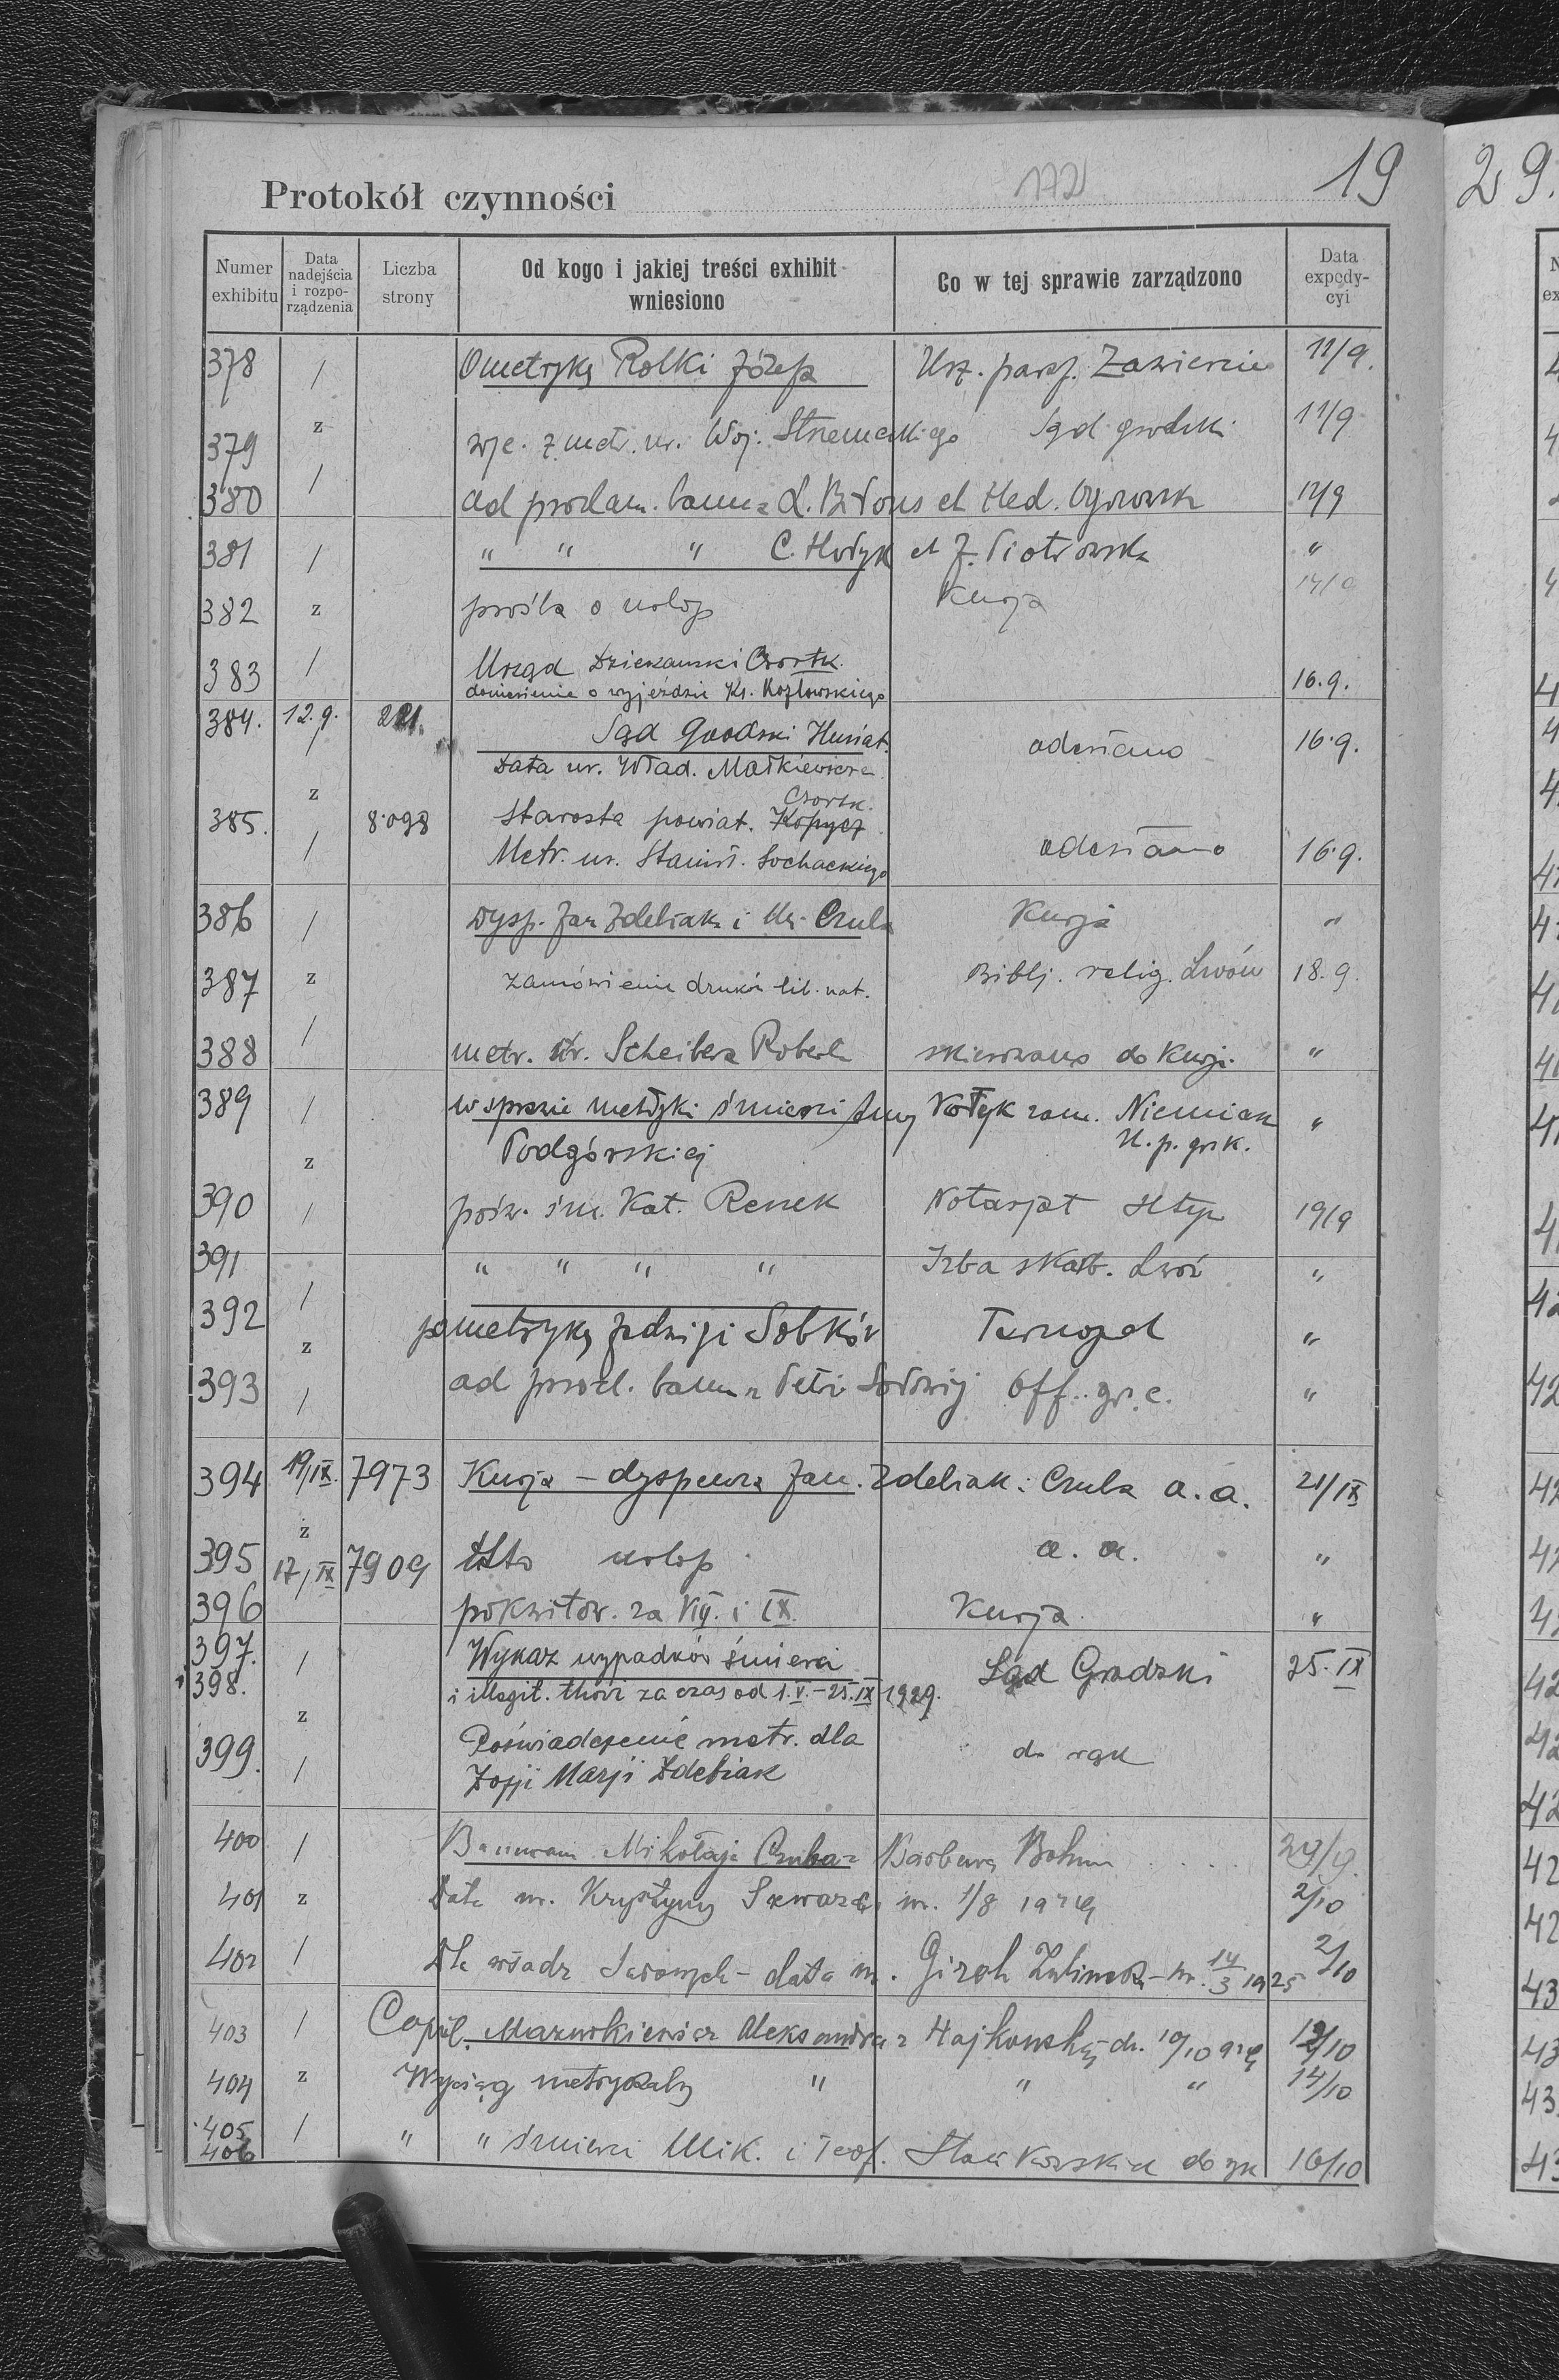 172 19 29.
Protokół czynności
Numer exhibitu
Data nadejścia i rozporządzenia
Liczba strony
Od kogo i jakiej treści exhibit wniesiono
Co w tej sprawie zarządzono
Data expedycyi
378 / O metrykę Rolki Józefa Urz. paraf. Zawiercie 11/9.
z
379 wyc. z metr. ur. Woj. Sąd grodzki 11/9
380 / ad proclam. bann. L. Biłous et Hed. 12/9
381 / " " " C. Hołyk et J. Piotrowska "
382 z prośba o urlop Kurja
383 / Urząd Dziekański Czortk.
doniesienie o wyjeździe Ks. Kozłowskiego 16.9.
384. 12.9. 221. Sąd Grodzki Husiat. odesłano 16.9.
/ Data ur. Wład. Małkiewicza
z Czortk.
385. 8.098 Starosta powiat. Kopycz.
/ Metr. ur. Stanisł. Sochackiego odesłano 16.9.
386 / Dysp. Jan Zdebiak i Czuba Kurja "
387 z zamówienie druków lib. nat. Biblj. relig. Lwów 18.9.
388 / metr. ur. Scheibera Roberta skierowano do Kurji. "
389 / w sprawie metryki śmierci Anny Kołyk zam. Niemiak "
z Podgórskiej U. p. gr. k.
390 / pośw. śm. Kat. Renek Notarjat 19/9
391 " " " " Izba skarb. Lwów "
392 / metrykę Jadwigi Sobków Tarnopol "
z
393 / ad procl. bann. Petri Off. gr. c. "
394 19/IX. 7973 Kurja – dyspensa Jan. Zdebiak i Czuba a. a. 21/IX
z
395 17/IX 7909 dtto urlop a. a. "
396 pokwitow. za VIII. i IX. Kurja "
397. / Wykaz wypadków śmierci Sąd Grodzki 25.IX
398. i illegit. thori za czas od 1.V.–25.IX 1929.
z
399. / Poświadczenie metr. dla do rąk
Zofji Marji Zdebiak
400 / Mikołaja Czuba z Barbarą
401 z Data ur. Krystyny ur. 1/8 1929 2/10
402 / data ur. ur. 14/3 1925 2/10
403 / Copul. Mazurkiewicz Aleksandra z dn. 10/10 929 12/10
404 z Wyciąg metrykalny " " " 14/10
405 / " " śmierci Mik. i Teof. do rąk 16/10
406